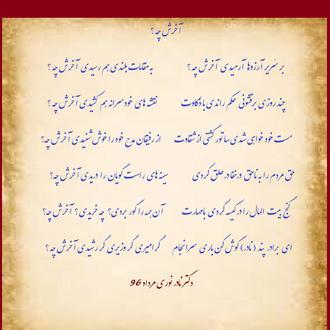 آخرش چه؟
بر سریر آرزوها آرمیدی آخرش چه؟ به مقامات بلندی هم رسیدی آخرش چه؟
چند روزی بر قشونی حکم راندی با ذکاوت نقشه های خودسرانه هم کشیدی آخرش چه؟
مست خودخواهی شدی ساتور کشتی از شقاوت از رفیقان مدح خود را خوش شنیدی آخرش چه؟
حق مردم را به ناحق در قفا در حلق کردی سینه های راست گویان را دریدی آخرش چه؟
گنج بیت المال را در کیسه کردی با مهارت آن همه را کور بردی؟ چه خریدی؟ آخرش چه؟
ای برادر پند (نادر) گوش کن باری سرانجام گر امیری گر وزیری گر رشیدی آخرش چه؟
دکتر نادر نوری مرداد 96